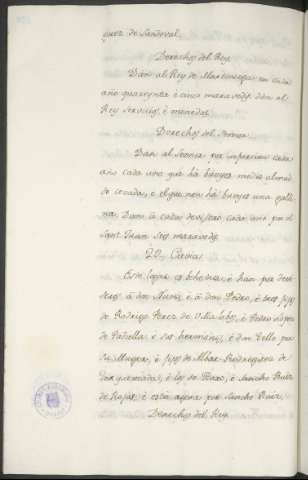 guez de Sandoval.
Derechos del Rey
Dan al Rey de Martiniega en cada
año quarenta e cinco maravedis, dan al
Rey servicios, é monedas.
Derechos del Señor
Dan al Señor por infurcion cada
año cada uno que há bueyes media almud
de cevada, e el que non há bueyes una galli-
na. Dan a cada devisero cada año por el
Sant Juan seis maravedis.
22, Cavia
Este logar es behetria, é han por devi-
seros á don Nuño, e á don Pedro, é sus fijos
de Rodrigo Perez de Villalobos, é Pedro Lopez
de Padiella, é sus hermanos, é don Tello por
su Muger, é fijos de Albar Rodriguez de
é los de Rozas, é Sancho Ruiz
de Rojas, é esta agora por Sancho Ruiz.
Derechos del Rey